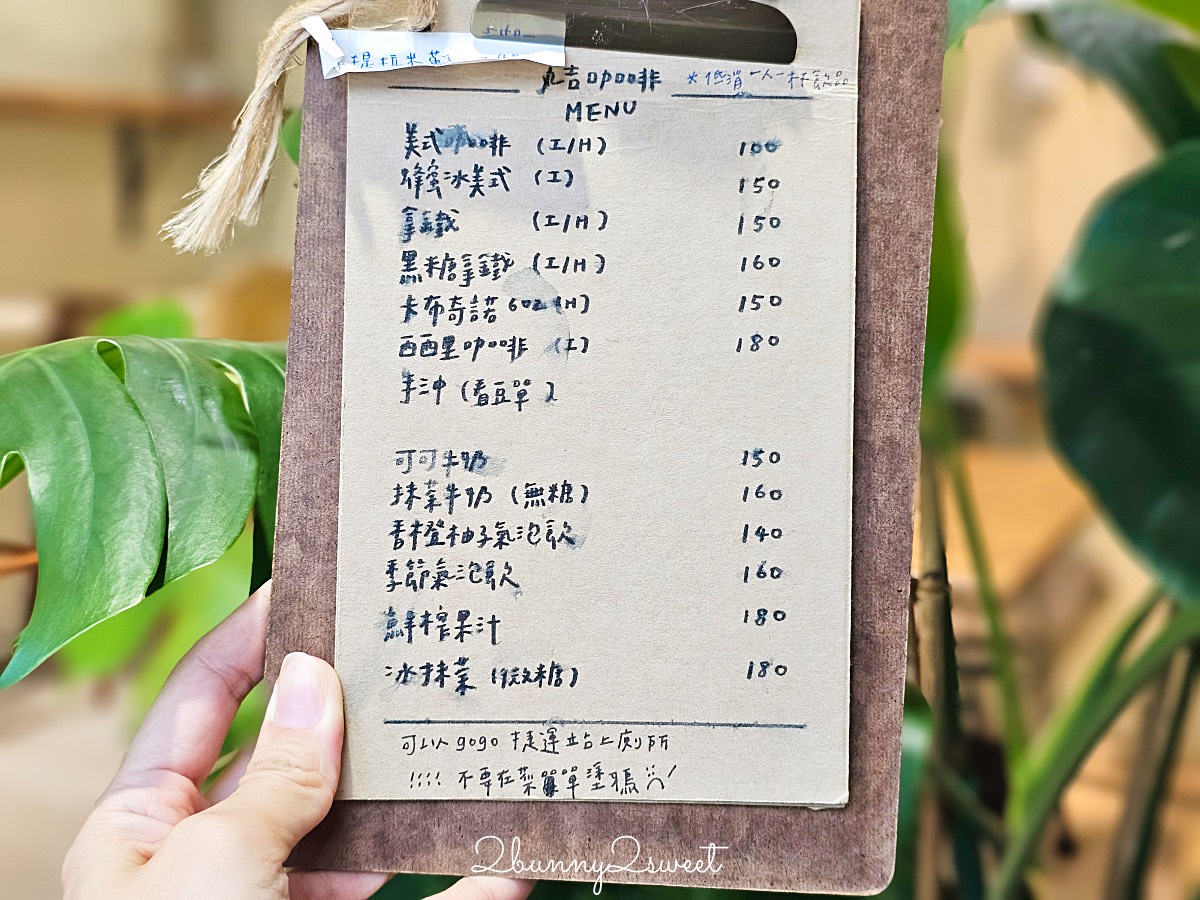 丸吉咖啡 *低消一人一杯飲品
MENU
美式咖啡 (I/H) 100
蜂蜜冰美式 (I) 150
拿鐵 (I/H) 150
黑糖拿鐵 (I/H) 160
卡布奇諾 6oz (H) 150
西西里咖啡 (I) 180
手沖 (看豆單)
可可牛奶 150
抹茶牛奶 (無糖) 160
香橙柚子氣泡飲 140
季節氣泡飲 160
鮮榨果汁 180
冰抹茶 (微糖) 180
可以 gogo 捷運站上廁所
!!!! 不要在菜單塗鴉
2bunny2sweet